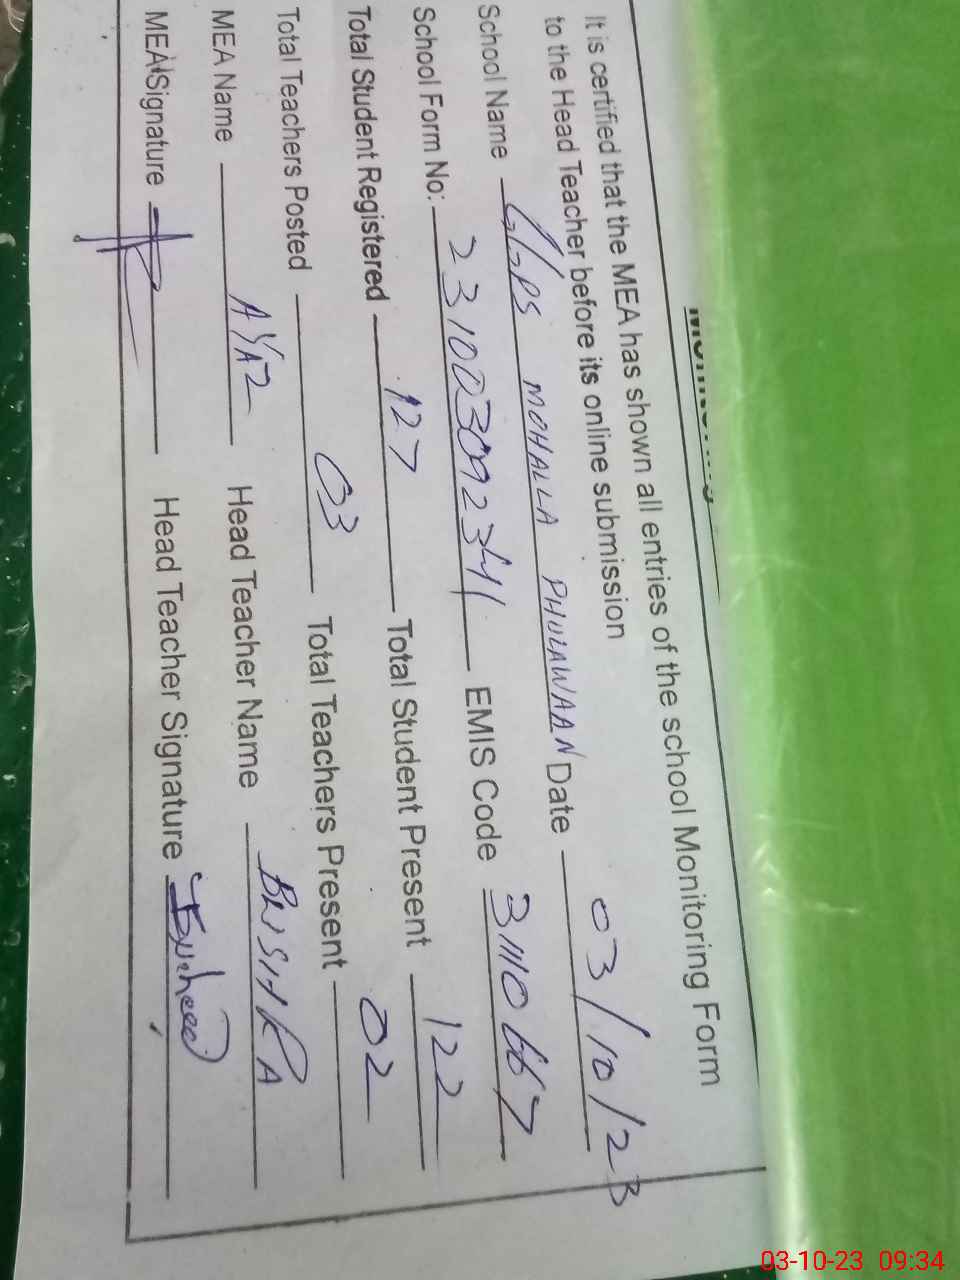 It is certified that the MEA has shown all entries of the school Monitoring Form
to the Head Teacher before its online submission
School Name GGPS MOHALLA PHULAWAAN Date 03/10/23
School Form No: EMIS Code
Total Student Registered 127 Total Student Present 122
Total Teachers Posted 03 Total Teachers Present 02
MEA Name AYAZ Head Teacher Name BUSHRA
MEA Signature Head Teacher Signature
03-10-23 09:34